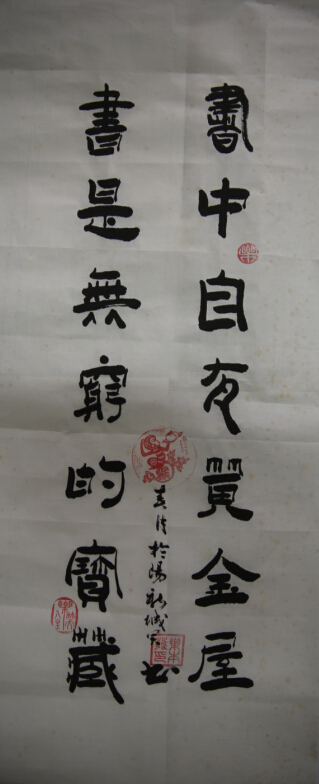 書中自有黃金屋
書是無窮的寶藏